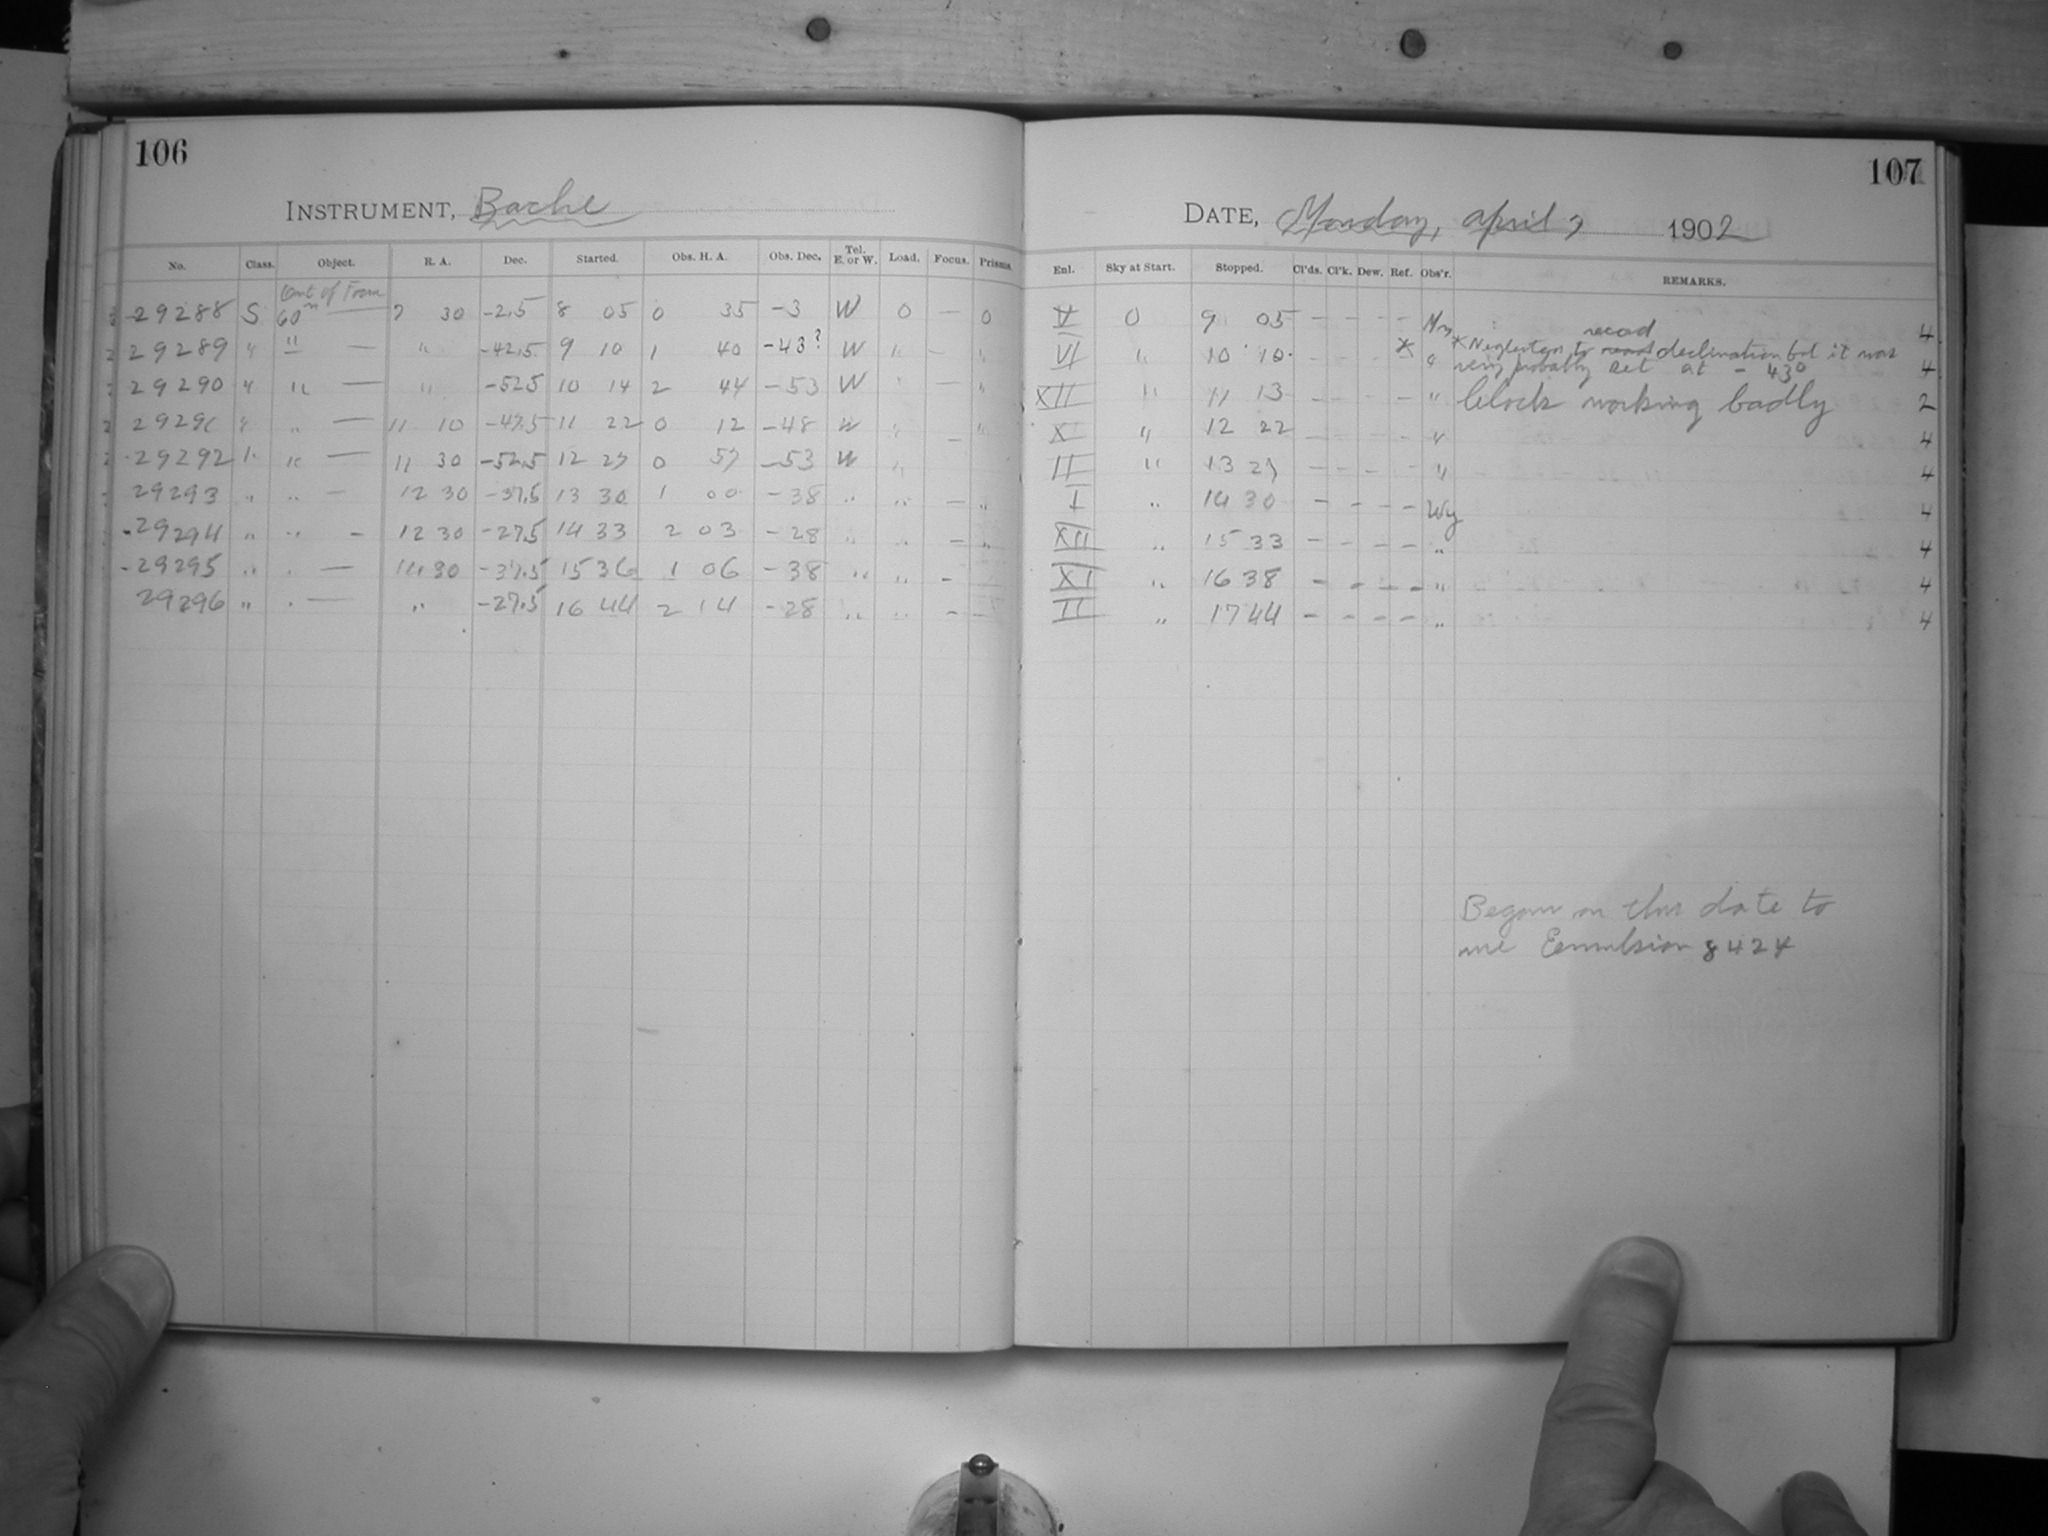 106
INSTRUMENT, Bache
No. Class. Object. R. A. Dec. Started. Obs. H. A. Obs. Dec. Tel. E. or W. Load. Focus. Prisms
Out of Focus
29288 S 60m — 7 30 -2.5 8 05 0 35 -3 W 0 — 0
29289 " " — " -42.5 9 10 1 40 -43? W " – "
29290 " " — " -52.5 10 14 2 44 -53 W " — "
29291 " " — 11 10 -47.5 11 22 0 12 -48 W " – "
29292 " " — 11 30 -52.5 12 27 0 57 -53 W "
29293 " " — 12 30 -37.5 13 30 1 00 -38 " " – "
29294 " " – 12 30 -27.5 14 33 2 03 -28 " " – "
29295 " " — 14 30 -37.5 15 36 1 06 -38 " " – —
29296 " " — " -27.5 16 44 2 14 -28 " " – –
107
DATE, Monday, April 7 1902
Enl. Sky at Start. Stopped. Cl'ds. Cl'k. Dew. Ref. Obs'r. REMARKS.
V 0 9 05 – – – – 4
VI " 10 10 – – – * " * Neglected to record declination but it was very probably set at -43° 4
XII " 11 13 – – – – " Clock working badly 2
X " 12 22 – – – – " 4
II " 13 27 – – – – " 4
I " 14 30 – – – – Wy 4
XII " 15 33 – – – – " 4
XI " 16 38 – – – – " 4
II " 17 44 – – – – " 4
Began on this date to
use Emulsion 8424